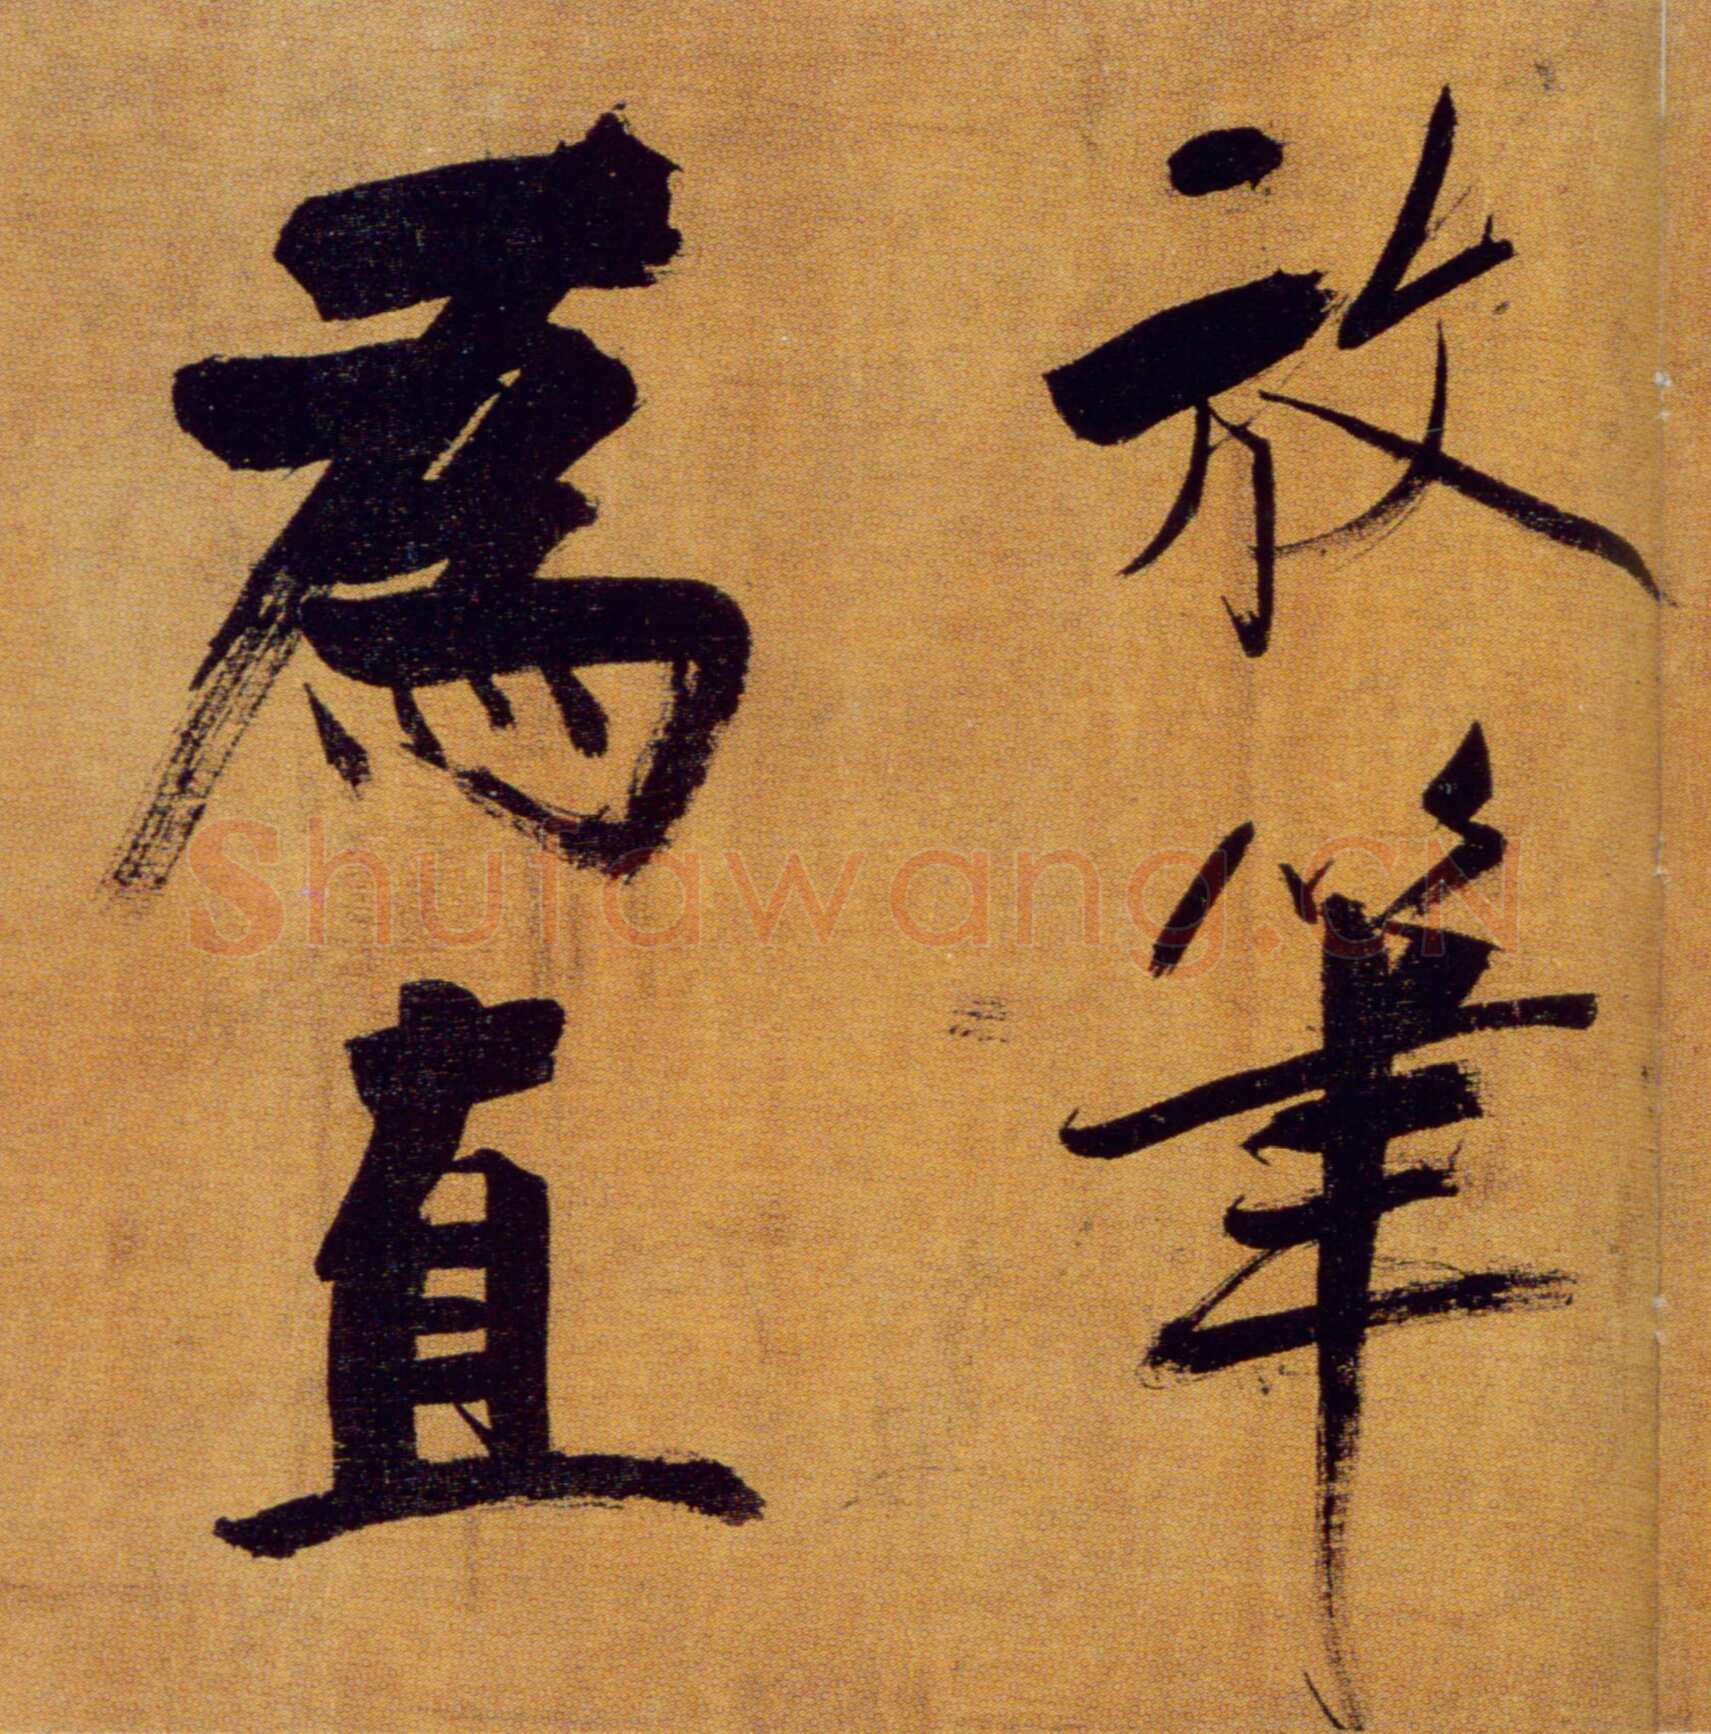 放筆
為直
Shufawang.CN